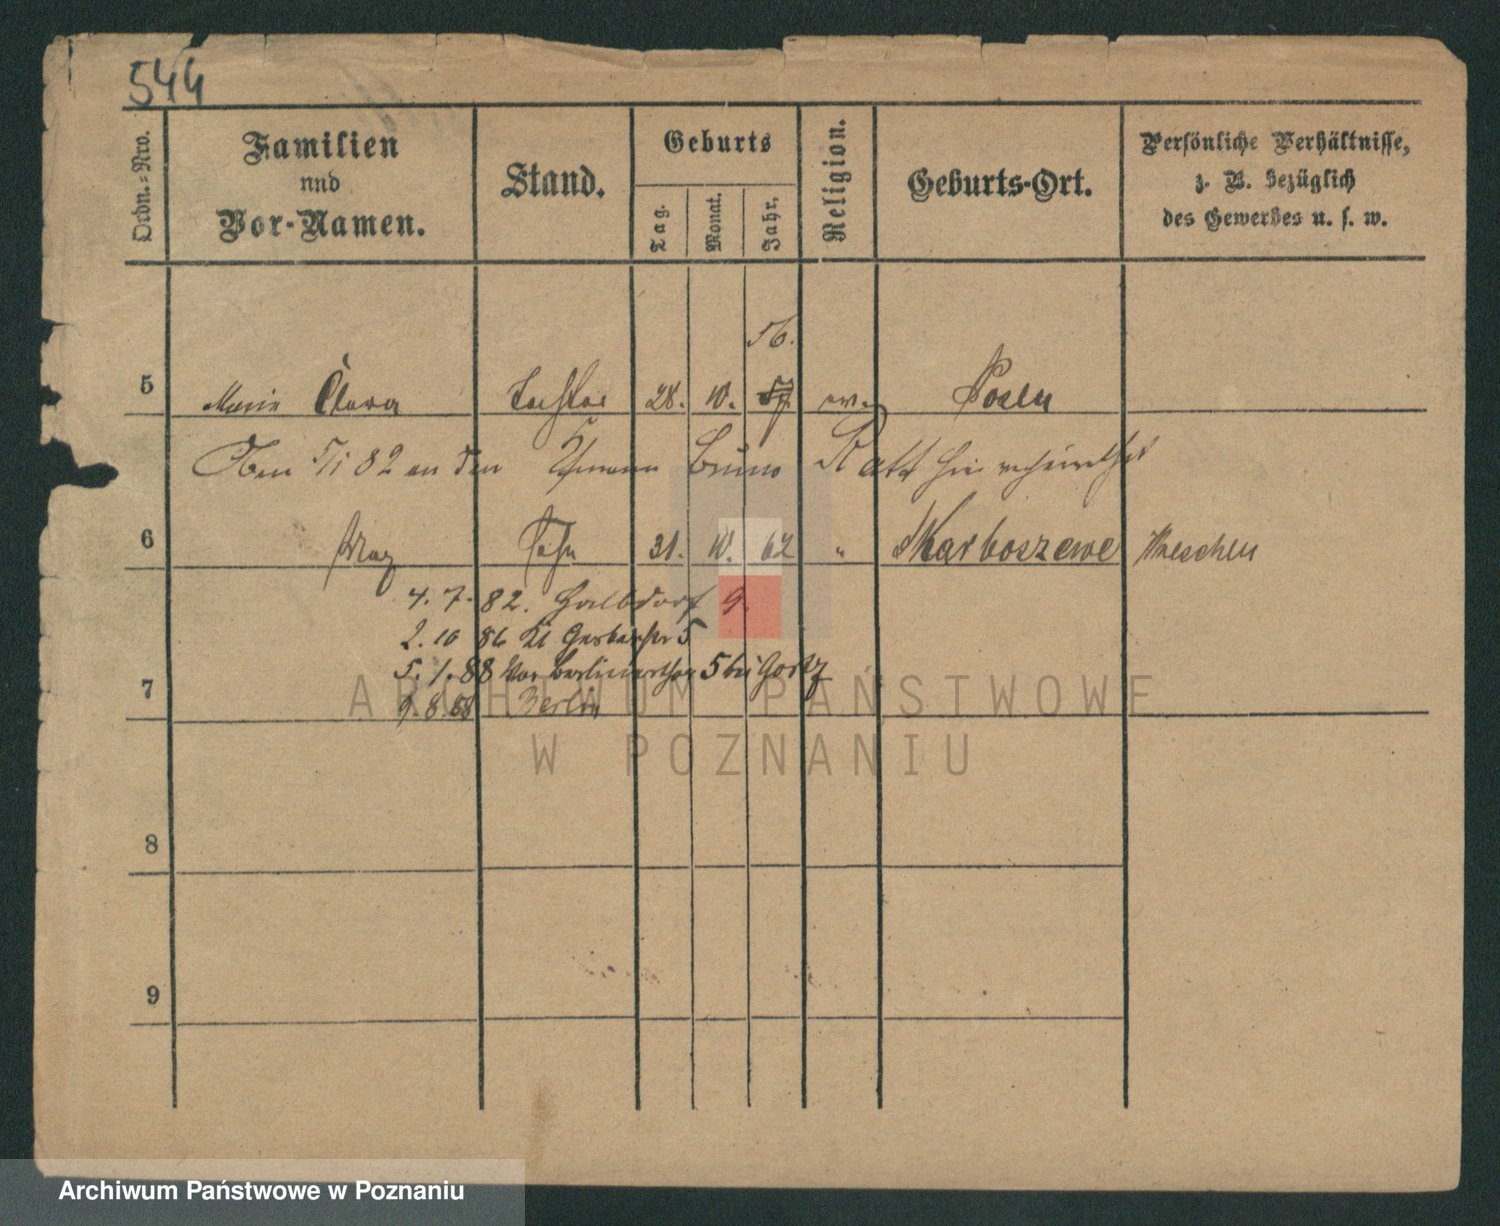 544
Ordn.-Nro.
Familien
und
Vor-Namen.
Stand.
Geburts
Tag.
Monat.
Jahr.
Religion.
Geburts-Ort.
Persönliche Verhältnisse,
z. B. bezüglich
des Gewerbes u. s. w.
56.
5 Marie Clara Tochter 28. 10. 57 ev. Posen
82 an den Bruno hier verheirathet
6 Max Sohn 31. 10. 62 " Skarboszewo Wreschen
4. 7. 82. Halbdorf 9.
2. 10 86 Kl Gerberstr 5
5. 1. 88 Vor Berlinerthor 5 bei
7
9. 8. 88 Berlin
8
9
ARCHIWUM PAŃSTWOWE
W POZNANIU
Archiwum Państwowe w Poznaniu